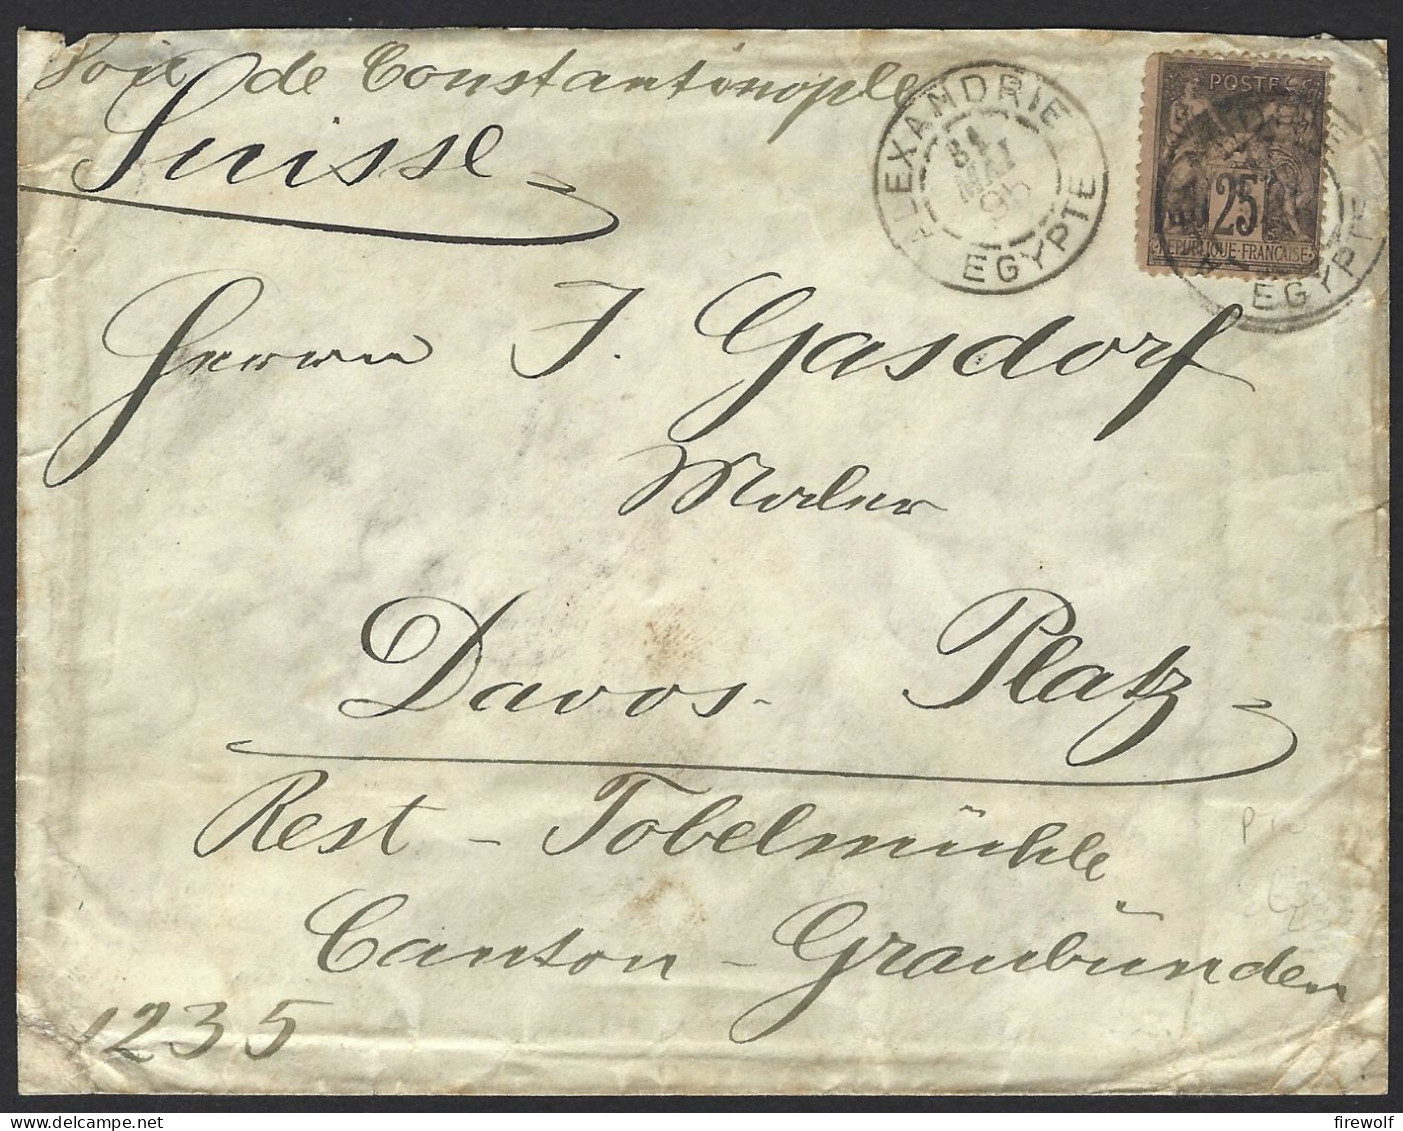 Voie de Constantinople
Suisse
ALEXANDRIE
31
MAI
95
EGYPTE
POSTES
25
REPUBLIQUE FRANÇAISE
EGYPTE
Herrn J. Gasdorf
Maler
Davos-Platz
Rest - Tobelmühle
Canton - Graubünden
1235
firewolf